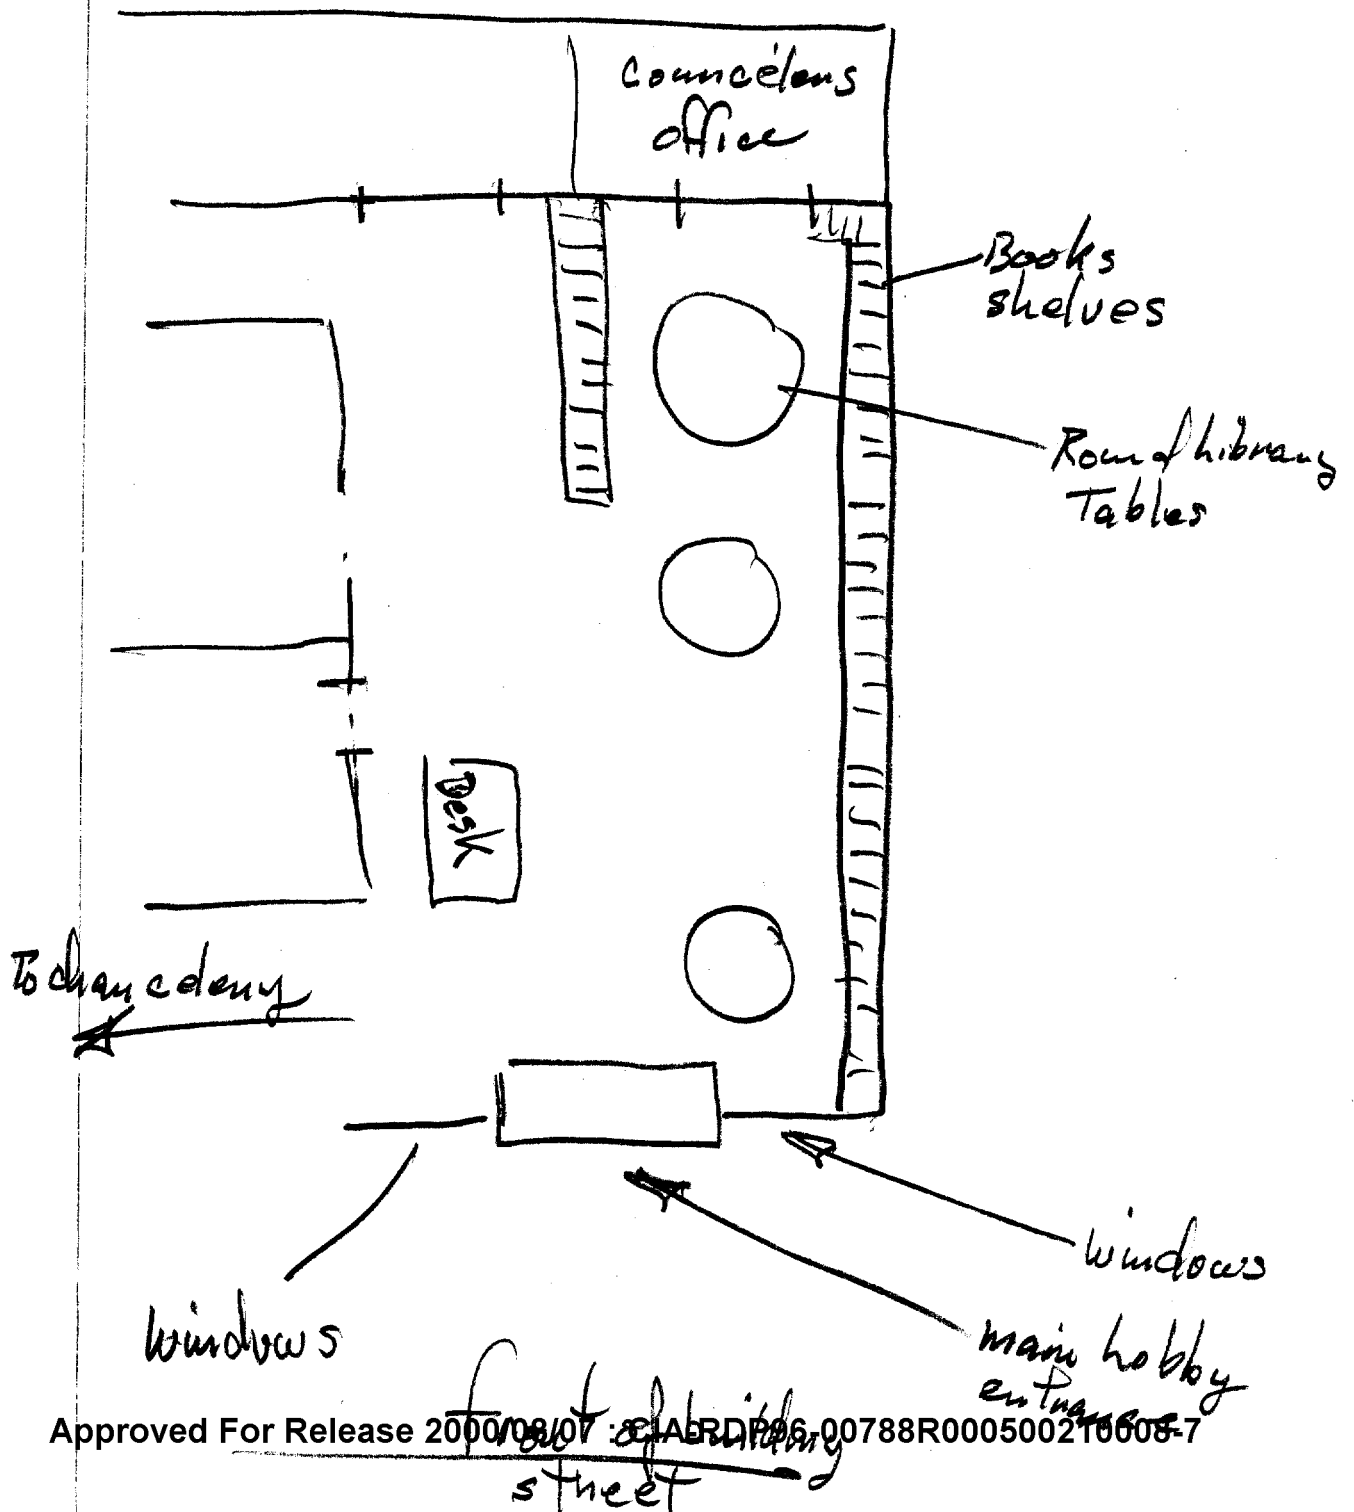 Councélors
office
Books
shelves
Round Library
Tables
Desk
To chancelery
windows
windows
main Lobby
entrance
front of building
Approved For Release 2000/08/07 : CIA-RDP96-00788R000500210008-7
street